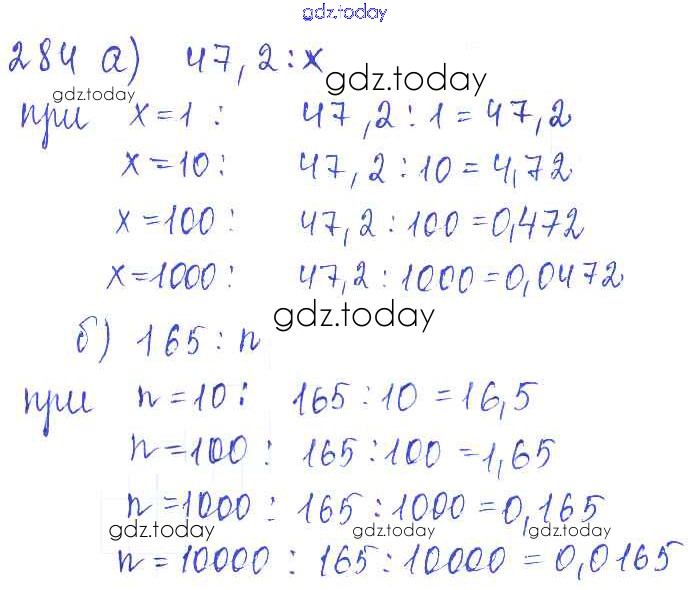 gdz.today
284 а) 47,2 : x
gdz.today
gdz.today
при x=1 : 47,2 : 1 = 47,2
x=10 : 47,2 : 10 = 4,72
x=100 : 47,2 : 100 = 0,472
x=1000 : 47,2 : 1000 = 0,0472
gdz.today
б) 165 : n
при n=10 : 165 : 10 = 16,5
n=100 : 165 : 100 = 1,65
n=1000 : 165 : 1000 = 0,165
gdz.today gdz.today gdz.today
n=10000 : 165 : 10000 = 0,0165